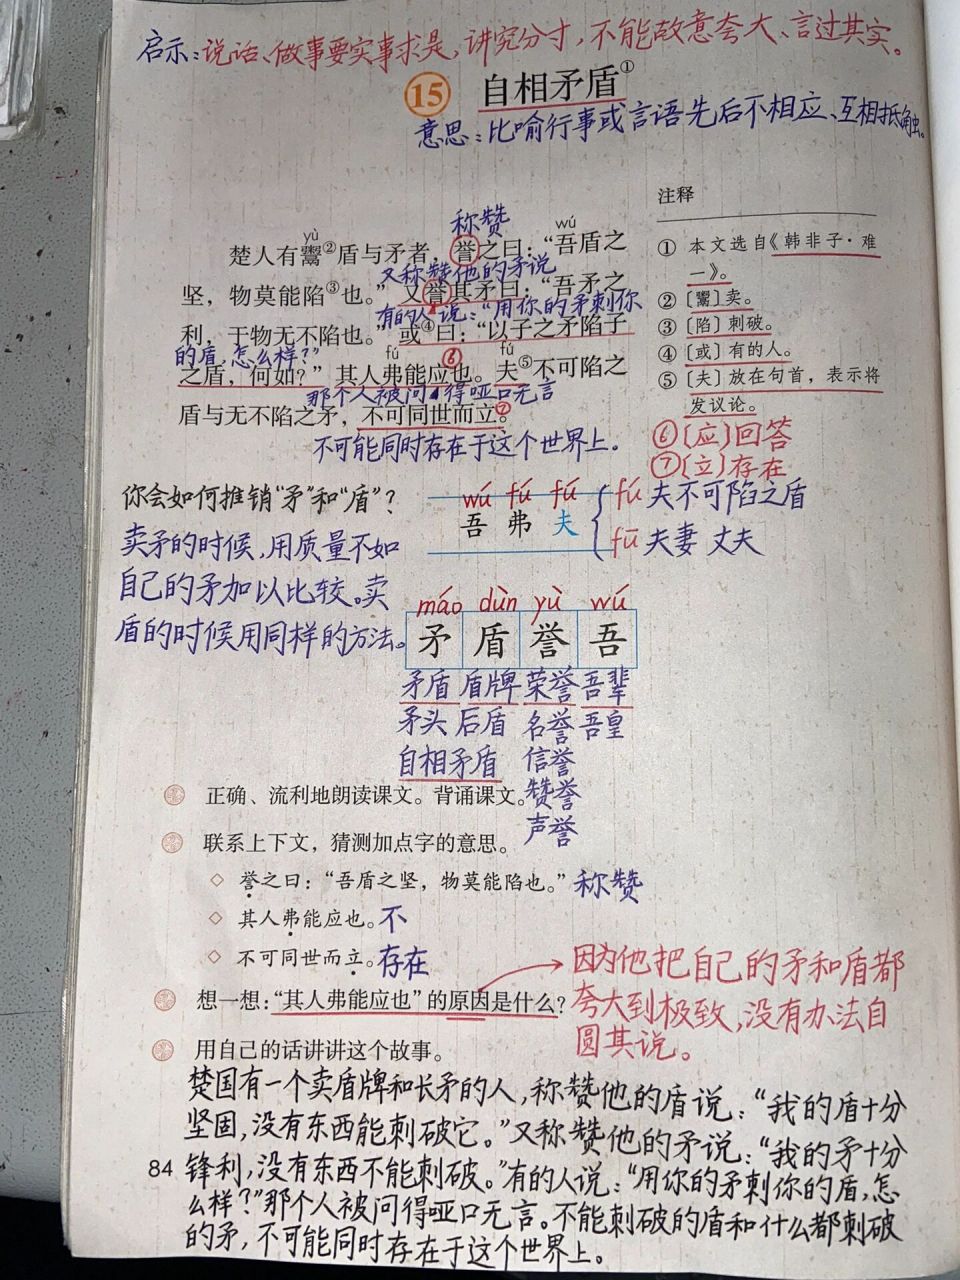 启示:说话、做事要实事求是,讲究分寸,不能故意夸大、言过其实。
15 自相矛盾①
意思:比喻行事或言语先后不相应、互相抵触。
注释
称赞
yù wú
楚人有鬻②盾与矛者,誉之曰:“吾盾之
又称赞他的矛说
坚,物莫能陷③也。”又誉其矛曰:“吾矛之
有的人说:“用你的矛刺你
利,于物无不陷也。”或④曰:“以子之矛陷子
的盾,怎么样?”
fú ⑥ fú
之盾,何如?”其人弗能应也。夫⑤不可陷之
那个人被问得哑口无言
盾与无不陷之矛,不可同世而立⑦。
不可能同时存在于这个世界上。
① 本文选自《韩非子·难
一》。
② 〔鬻〕卖。
③ 〔陷〕刺破。
④ 〔或〕有的人。
⑤ 〔夫〕放在句首,表示将
发议论。
⑥〔应〕回答
⑦〔立〕存在
你会如何推销“矛”和“盾”?
卖矛的时候,用质量不如
自己的矛加以比较。卖
盾的时候用同样的方法。
wú fú fú
吾 弗 夫
fú 夫不可陷之盾
fū 夫妻 丈夫
máo dùn yù wú
矛 盾 誉 吾
矛盾 盾牌 荣誉 吾辈
矛头 后盾 名誉 吾皇
自相矛盾 信誉
赞誉
声誉
正确、流利地朗读课文。背诵课文。
联系上下文,猜测加点字的意思。
◇ 誉之曰:“吾盾之坚,物莫能陷也。” 称赞
◇ 其人弗能应也。不
◇ 不可同世而立。存在
想一想:“其人弗能应也”的原因是什么?
因为他把自己的矛和盾都
夸大到极致,没有办法自
圆其说。
用自己的话讲讲这个故事。
楚国有一个卖盾牌和长矛的人,称赞他的盾说:“我的盾十分
坚固,没有东西能刺破它。”又称赞他的矛说:“我的矛十分
84 锋利,没有东西不能刺破。”有的人说:“用你的矛刺你的盾,怎
么样?”那个人被问得哑口无言。不能刺破的盾和什么都刺破
的矛,不可能同时存在于这个世界上。